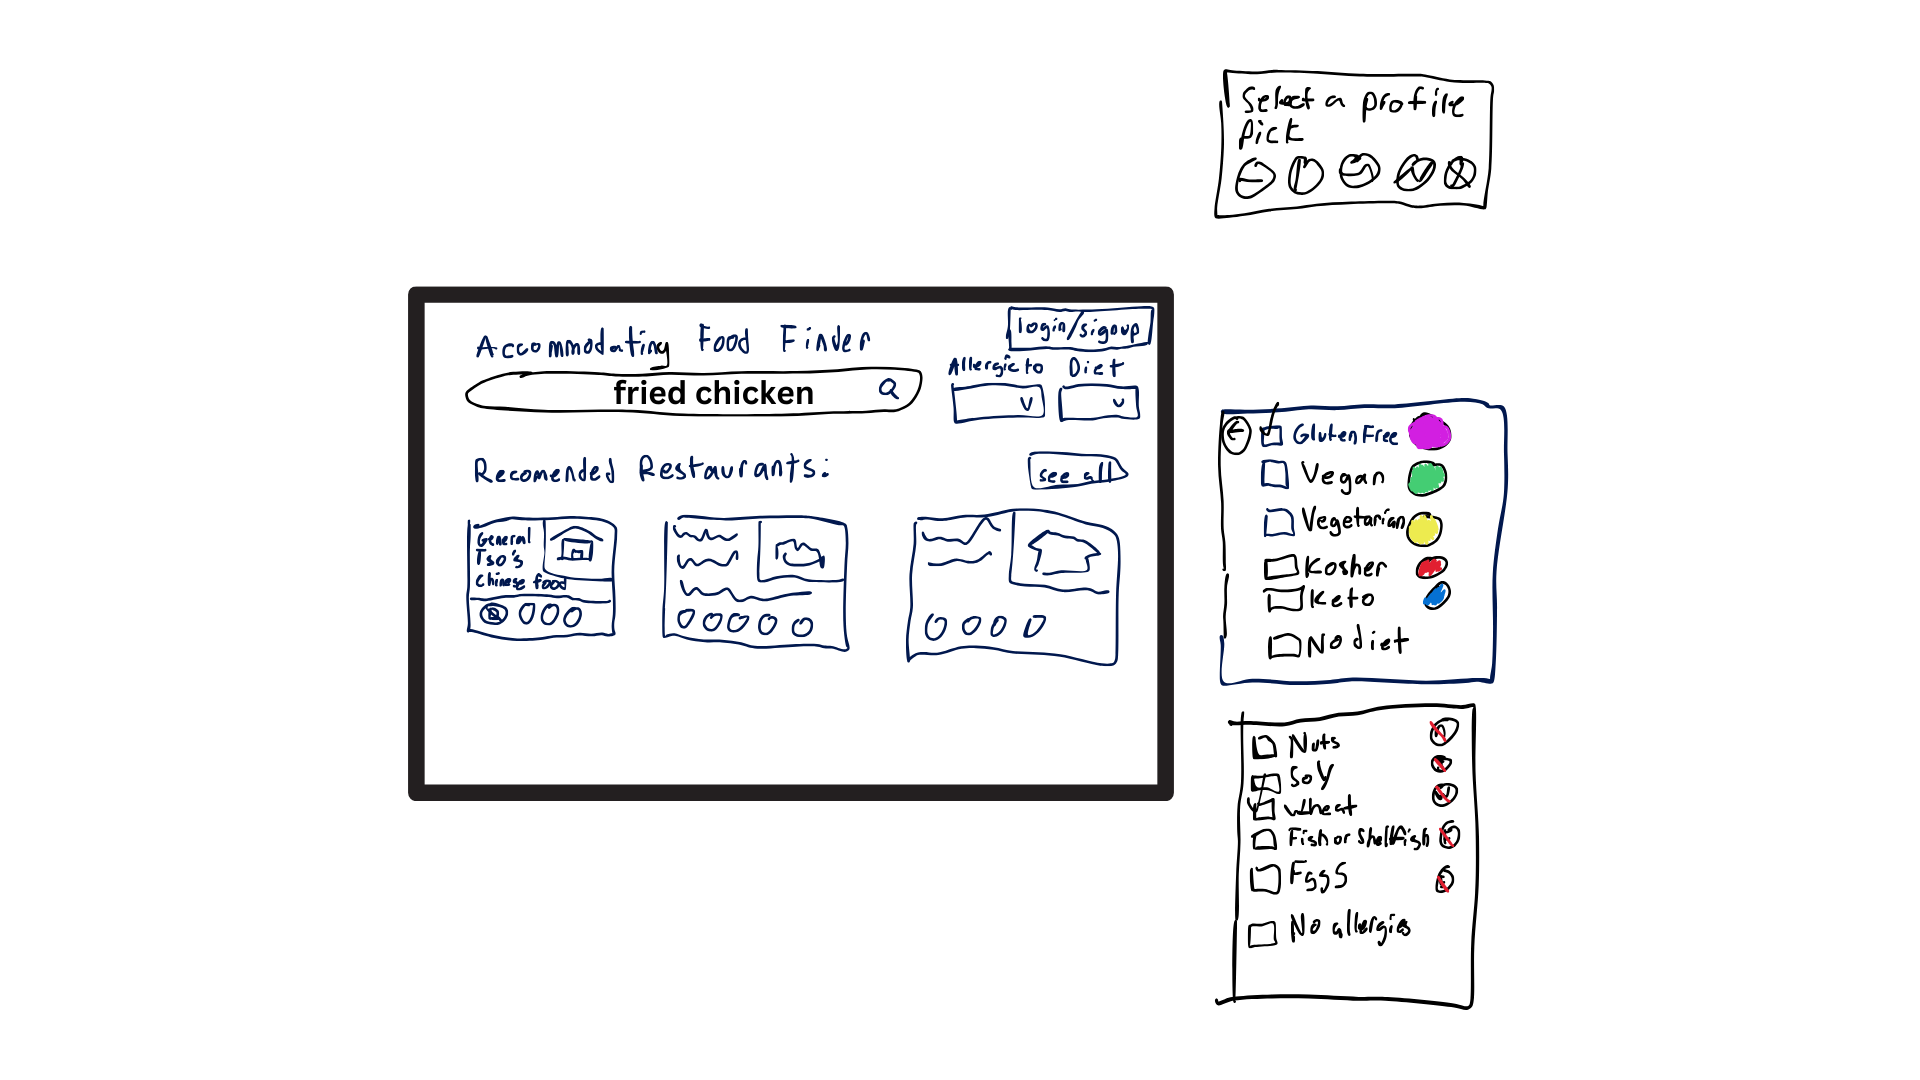 Select a profile
Pick
Accommodating Food Finder
login/signup
fried chicken
Allergic to
Diet
Recomended Restaurants:
see all
General
Tso's
Chinese food
Gluten Free
Vegan
Vegetarian
Kosher
Keto
No diet
Nuts
Soy
Wheat
Fish or Shellfish
Eggs
No allergies